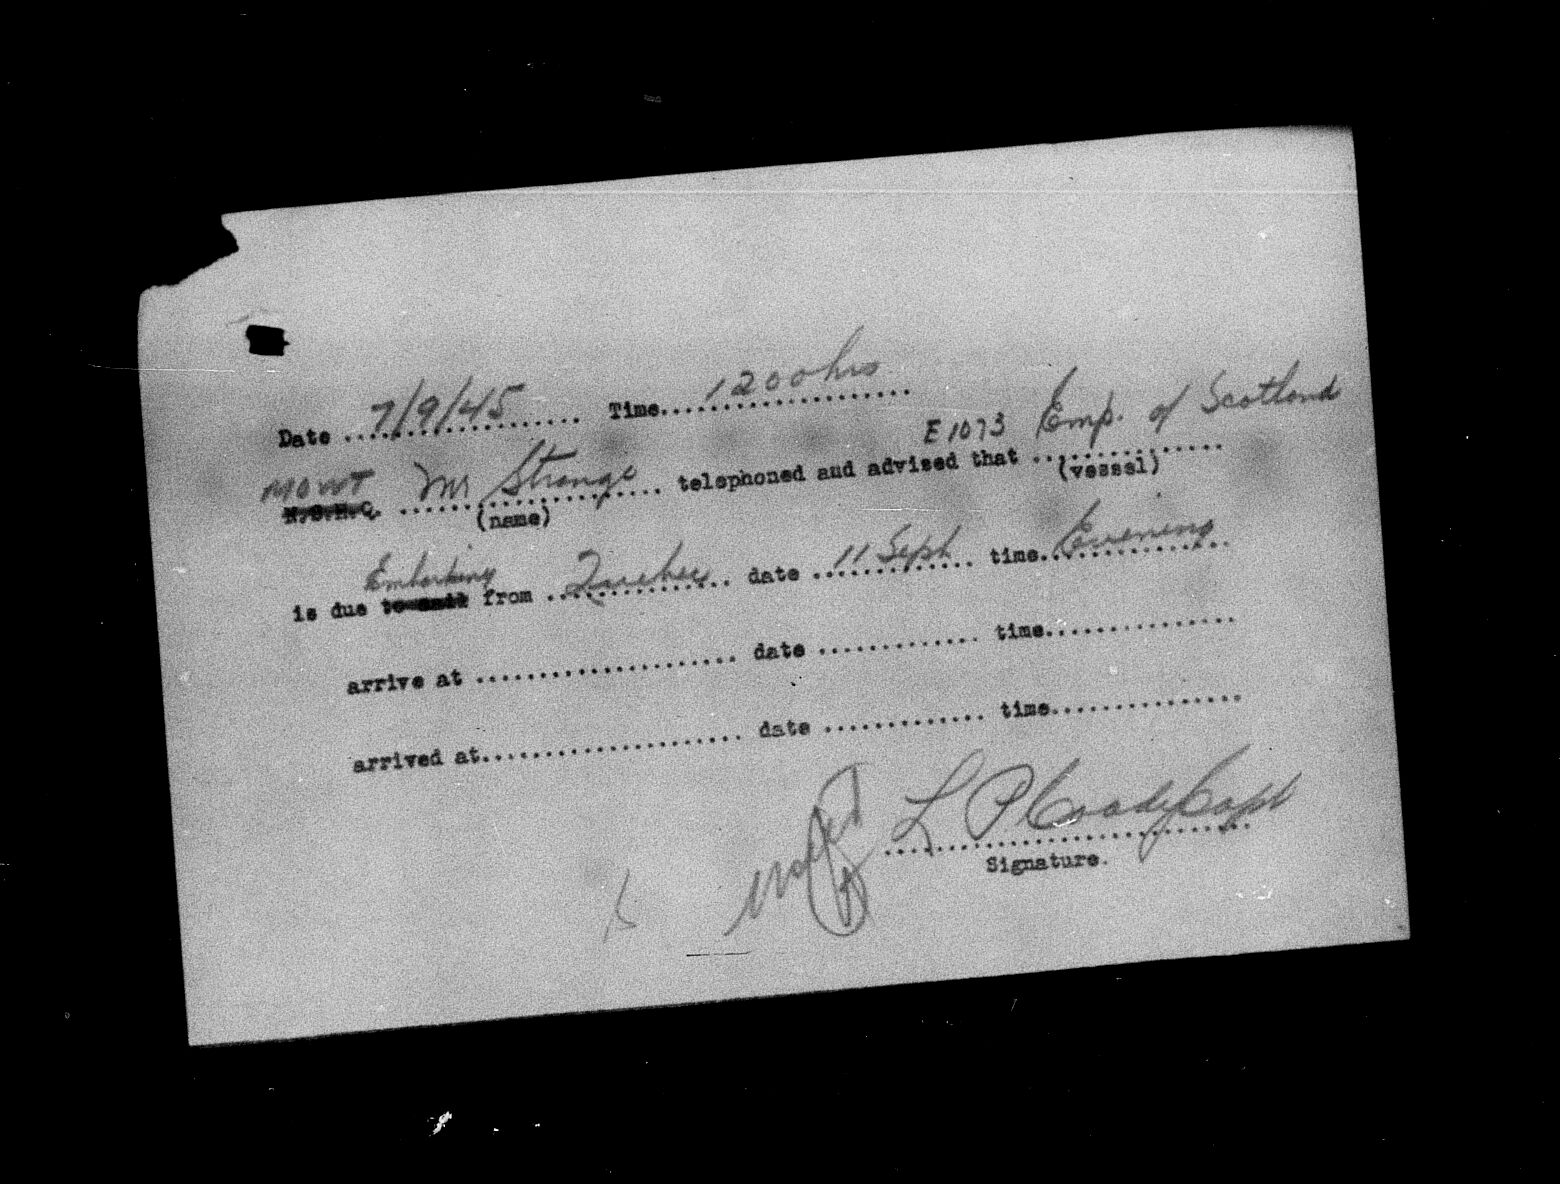 Date 7/9/45 Time 1200 hrs
MOWT N.S.H.Q. Mr Strange (name) telephoned and advised that E1073 Emp. of Scotland (vessel)
is due to sail Embarking from Quebec date 11 Sept time Evening
arrive at .................... date ............. time...............
arrived at.................... date ............. time...............
L P Coady Capt
Signature.